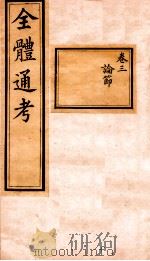 全體通考
卷三
論節